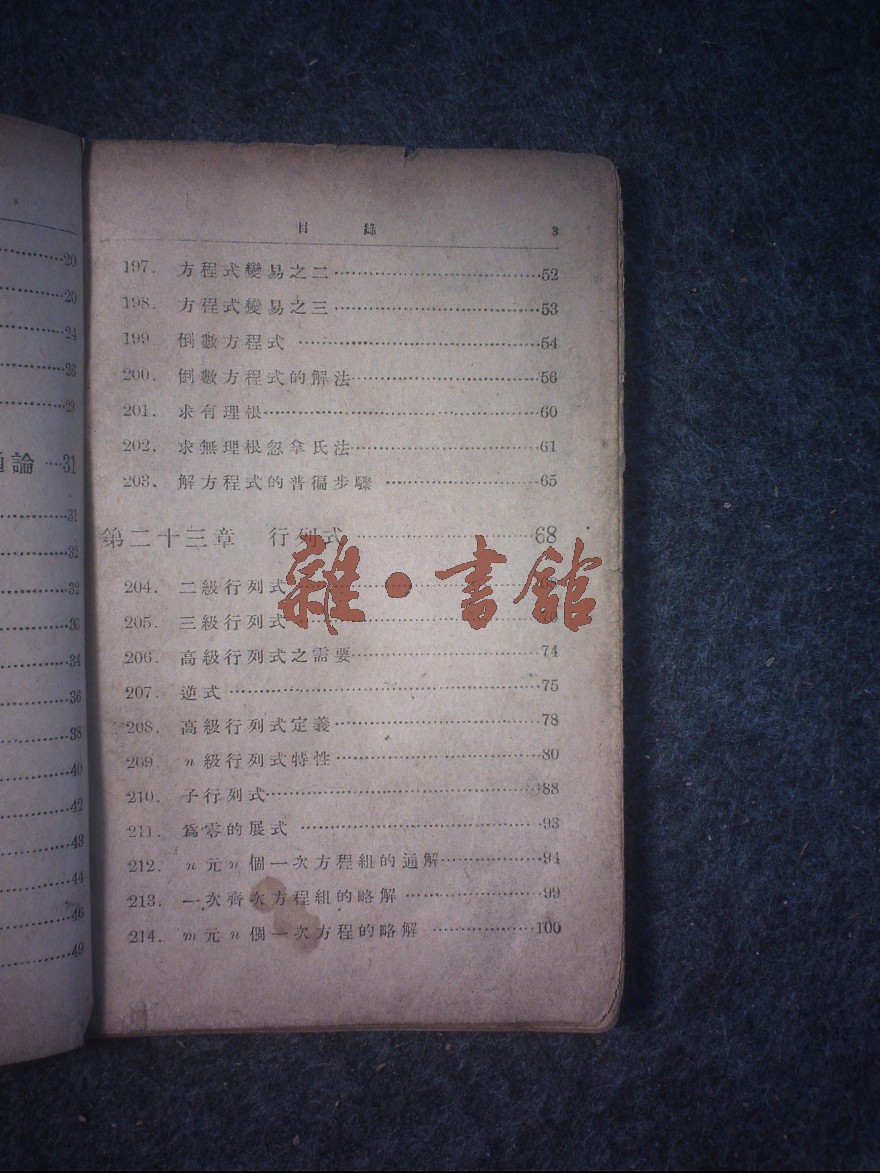 20
20
24
26
29
論 …31
31
32
32
33
34
36
38
40
42
43
44
46
49
目 錄 3
197. 方程式變易之二……52
198. 方程式變易之三……53
199. 倒數方程式……54
200. 倒數方程式的解法……56
201. 求有理根……60
202. 求無理根忽拿氏法……61
203. 解方程式的普徧步驟……65
第二十三章 行列式……68
204. 二級行列式
205. 三級行列式
206. 高級行列式之需要……74
207. 逆式……75
208. 高級行列式定義……78
209. n級行列式特性……80
210. 子行列式……88
211. 爲零的展式……93
212. n元n個一次方程組的通解……94
213. 一次齊次方程組的略解……99
214. m元n個一次方程的略解……100
雜·書館